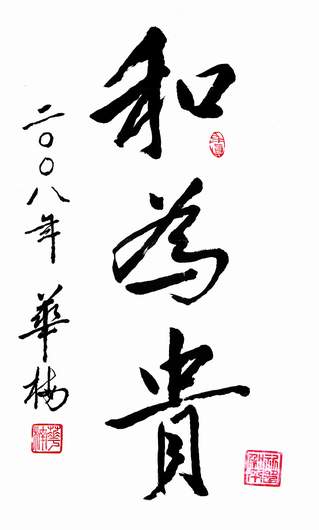 和為貴
二〇〇八年 華梅